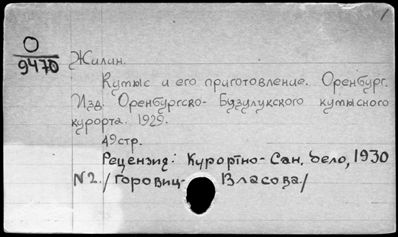 О
9470
Жилин.
Кумыс и его приготовление. Оренбург.
Изд. Оренбургско-Бузулукского кумысного
курорта. 1929.
49стр.
Рецензия: Курортно-Сан. дело, 1930
N2. /Горовиц-Власова/